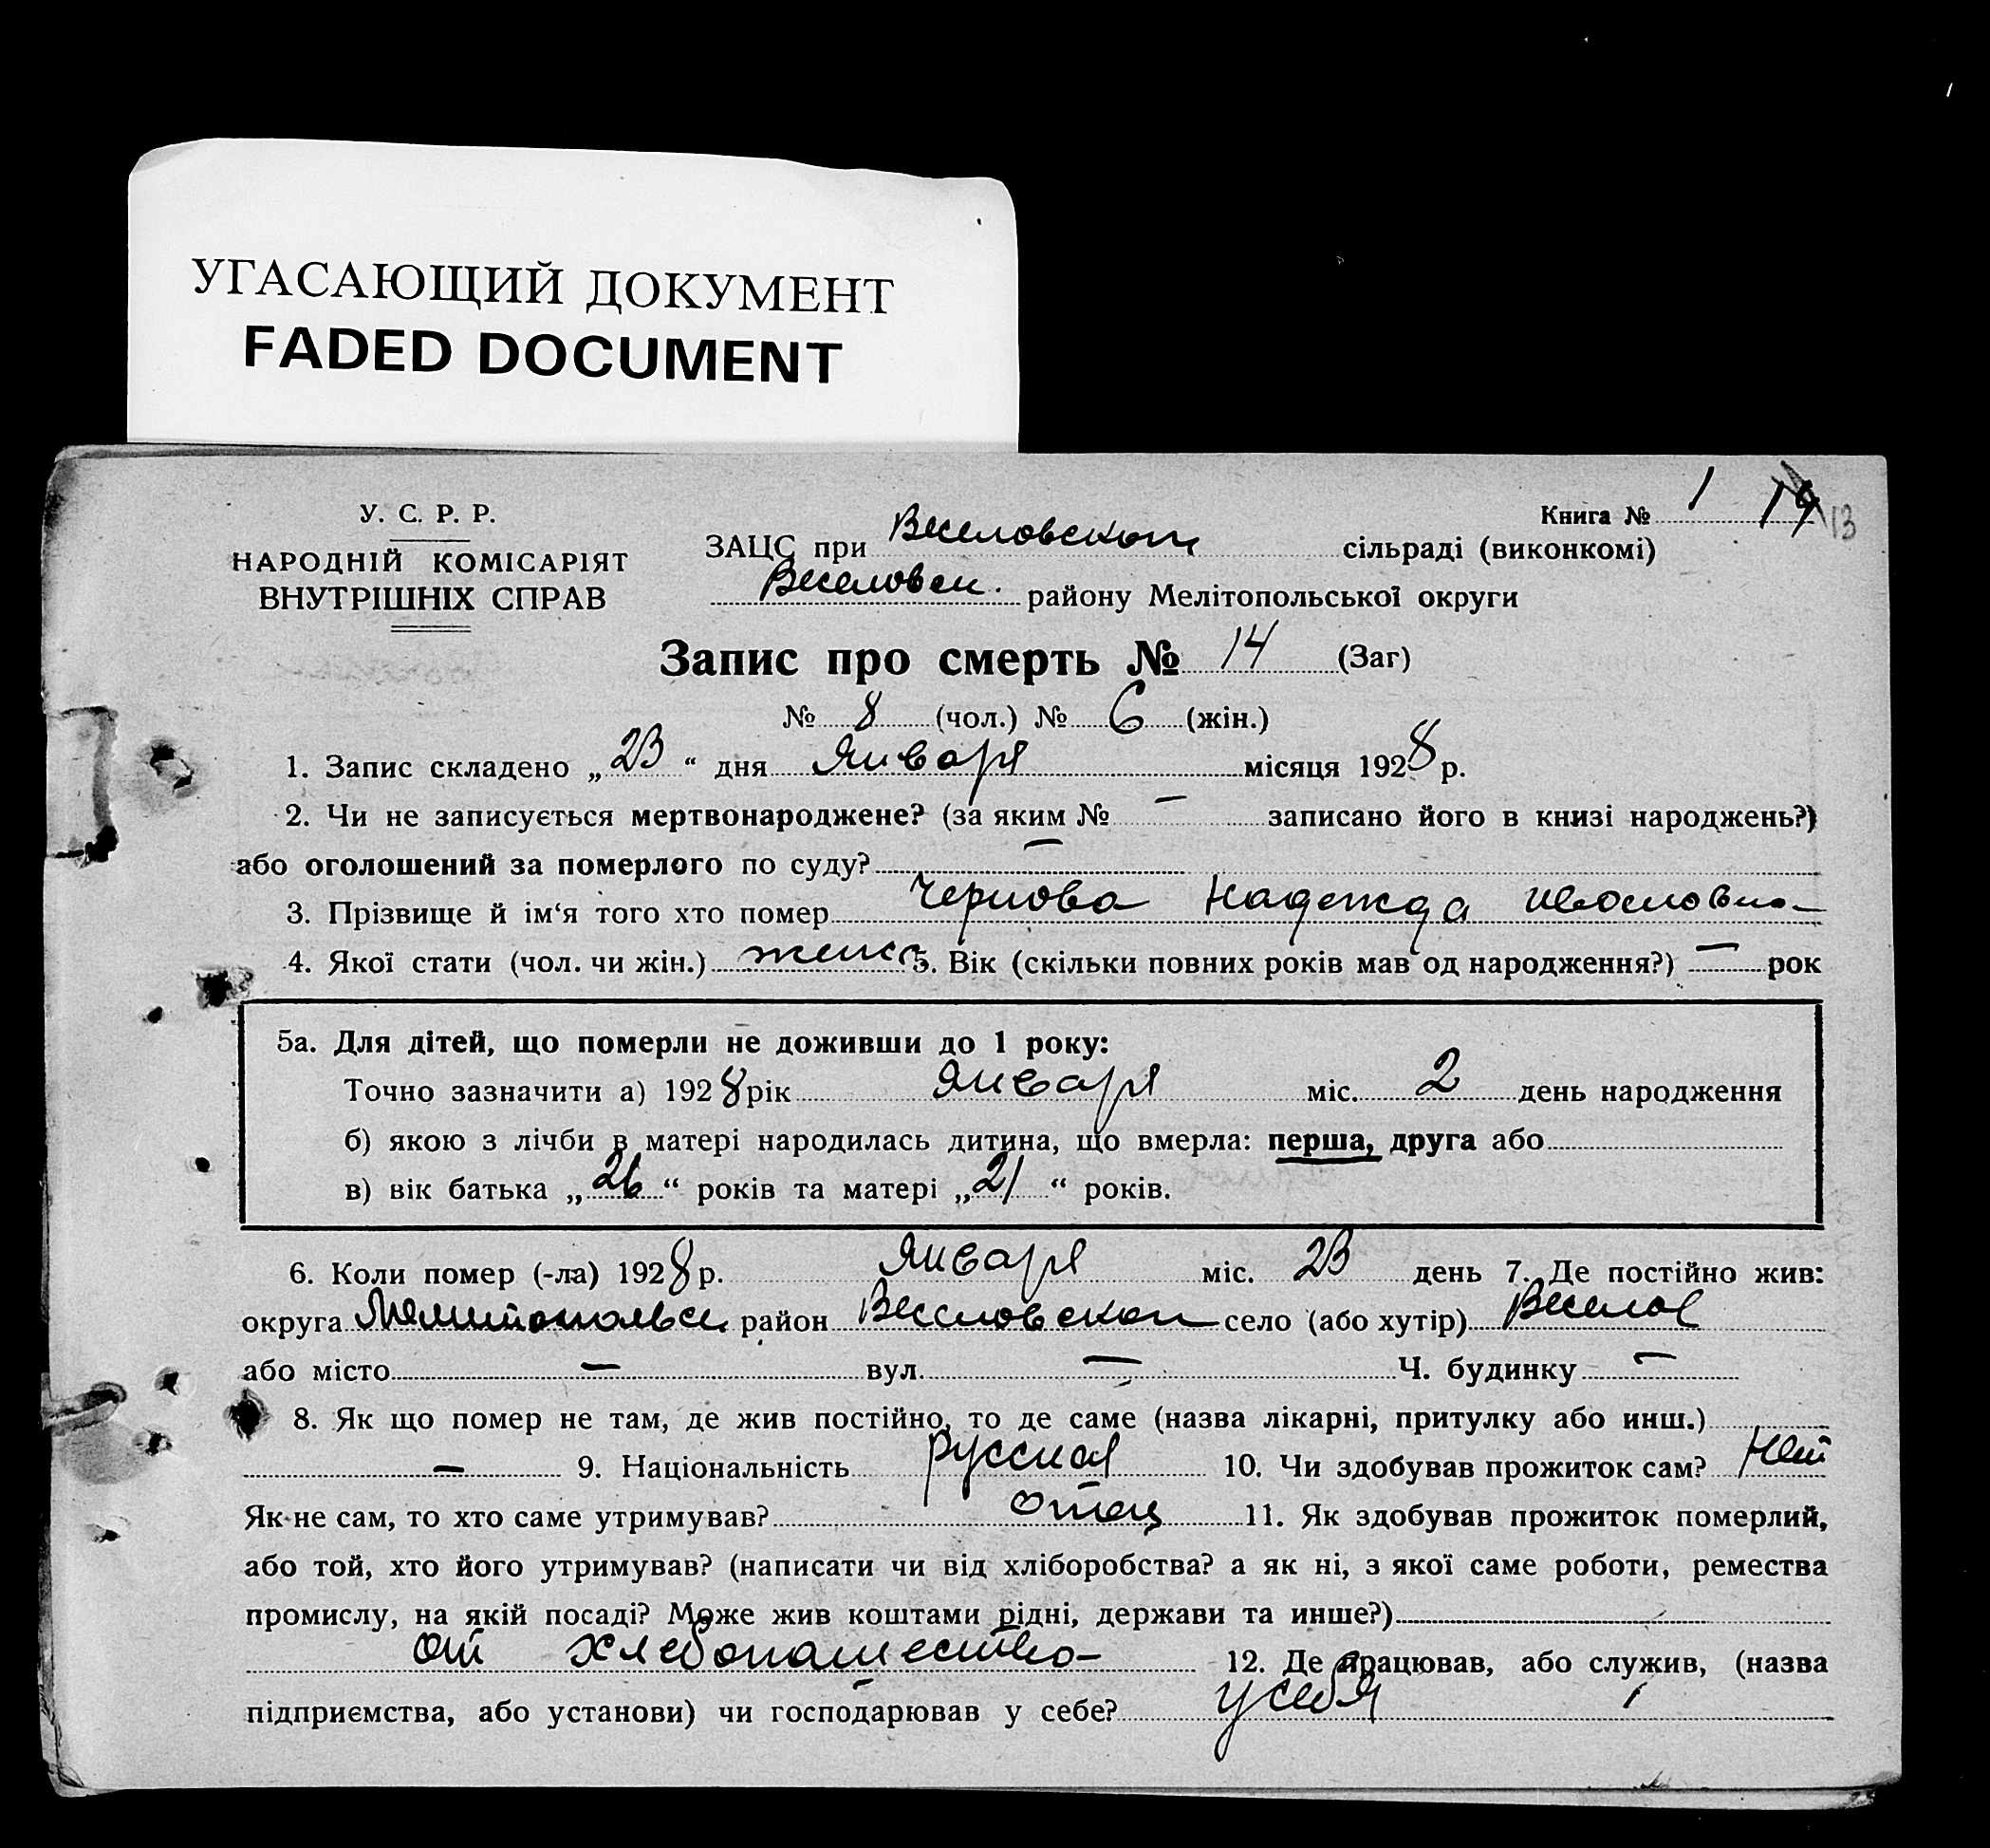 УГАСАЮЩИЙ ДОКУМЕНТ
FADED DOCUMENT
У. С. Р. Р.
НАРОДНІЙ КОМІСАРІЯТ
ВНУТРІШНІХ СПРАВ
Книга № 1 14 13
ЗАЦС при Веселовском сільраді (виконкомі)
Веселовск. району Мелітопольської округи
Запис про смерть № 14 (Заг)
№ 8 (чол.) № 6 (жін.)
1. Запис складено „23“ дня Января місяця 1928 р.
2. Чи не записується мертвонароджене? (за яким № — записано його в книзі народжень?)
або оголошений за померлого по суду? —
3. Прізвище й ім‘я того хто помер Чернова Надежда
4. Якої стати (чол. чи жін.) женск 5. Вік (скільки повних років мав од народження?) — рок
5а. Для дітей, що померли не доживши до 1 року:
Точно зазначити а) 1928 рік Января міс. 2 день народження
б) якою з лічби в матері народилась дитина, що вмерла: перша, друга або
в) вік батька „26“ років та матері „21“ років.
6. Коли помер (-ла) 1928 р. Января міс. 23 день 7. Де постійно жив:
округа Мелитопольск. район Веселовском село (або хутір) Веселое
або місто — вул. — Ч. будинку —
8. Як що помер не там, де жив постійно, то де саме (назва лікарні, притулку або инш.)
— 9. Національність русская 10. Чи здобував прожиток сам? Нет
Як не сам, то хто саме утримував? отец 11. Як здобував прожиток померлий,
або той, хто його утримував? (написати чи від хліборобства? а як ні, з якої саме роботи, ремества
промислу, на якій посаді? Може жив коштами рідні, держави та инше?)
от хлебопашество 12. Де працював, або служив, (назва
підприємства, або установи) чи господарював у себе? у себя